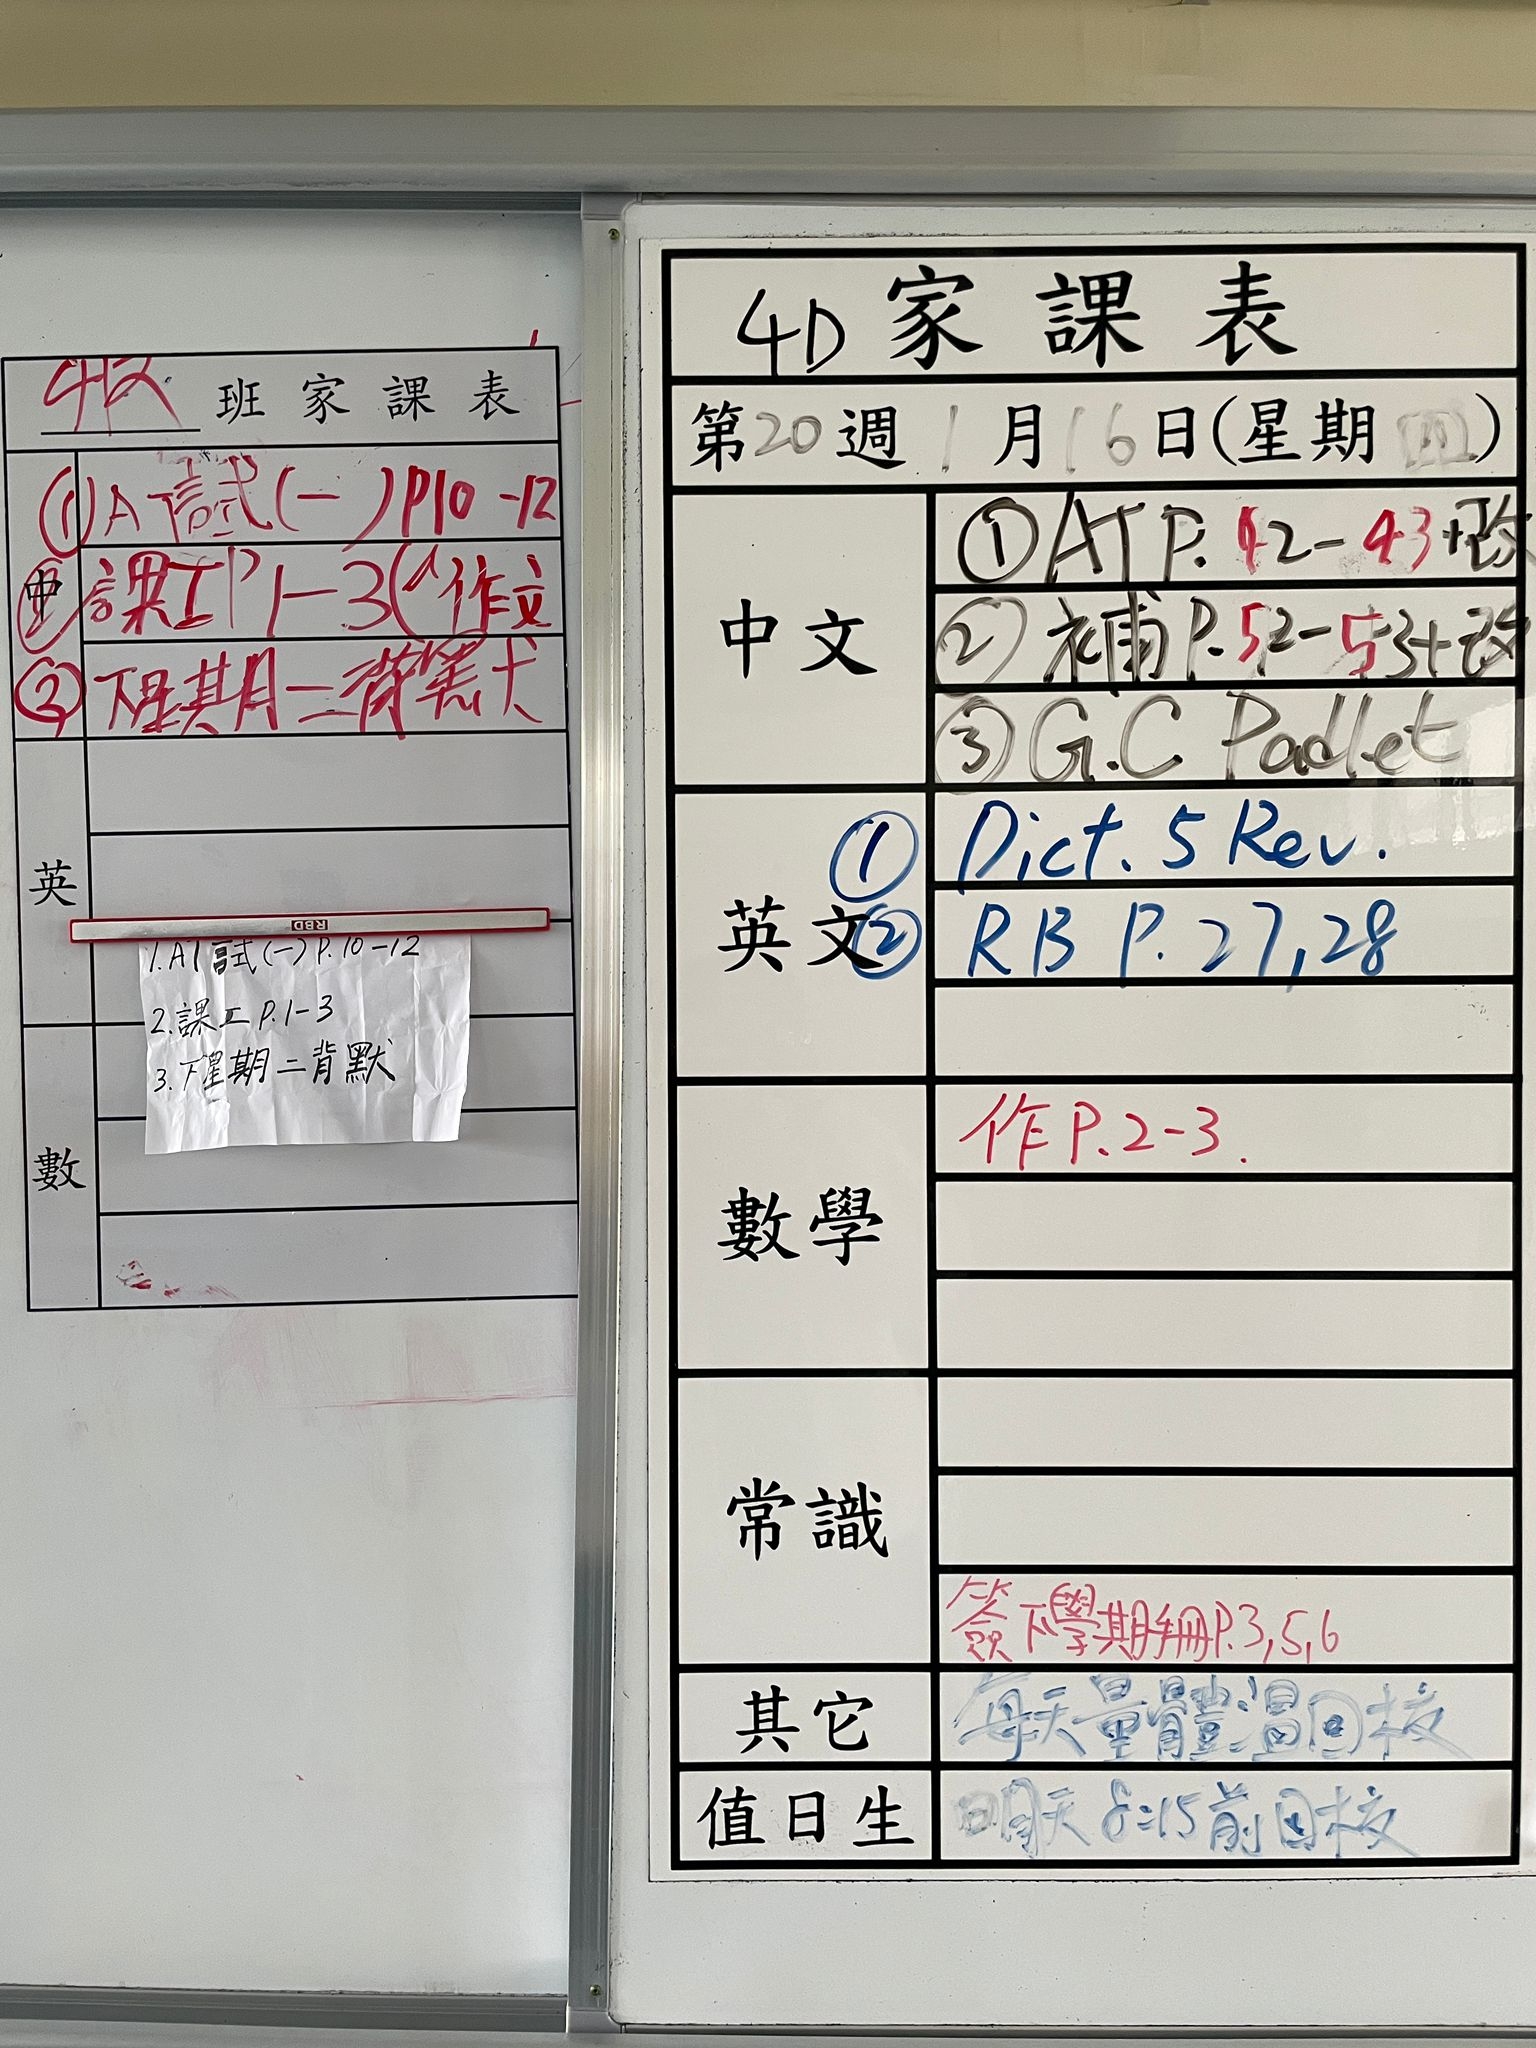 班家課表
(1) AT 試(一) P10-12
中
② 課工 P1-3(作文
③ 下星期二背默
英
RBD
1. AT 試(一) P.10-12
2. 課工 P.1-3
3. 下星期二背默
數
4D 家課表
第20週 1月16日(星期四)
中文
① AT P.42-43+改
② 補 P.52-53+改
③ G.C Padlet
英文
① Dict. 5 Rev.
② RB P. 27,28
數學
作 P.2-3.
常識
簽下學期手冊P.3,5,6
其它
每天量體溫回校
值日生
明天8:15前回校